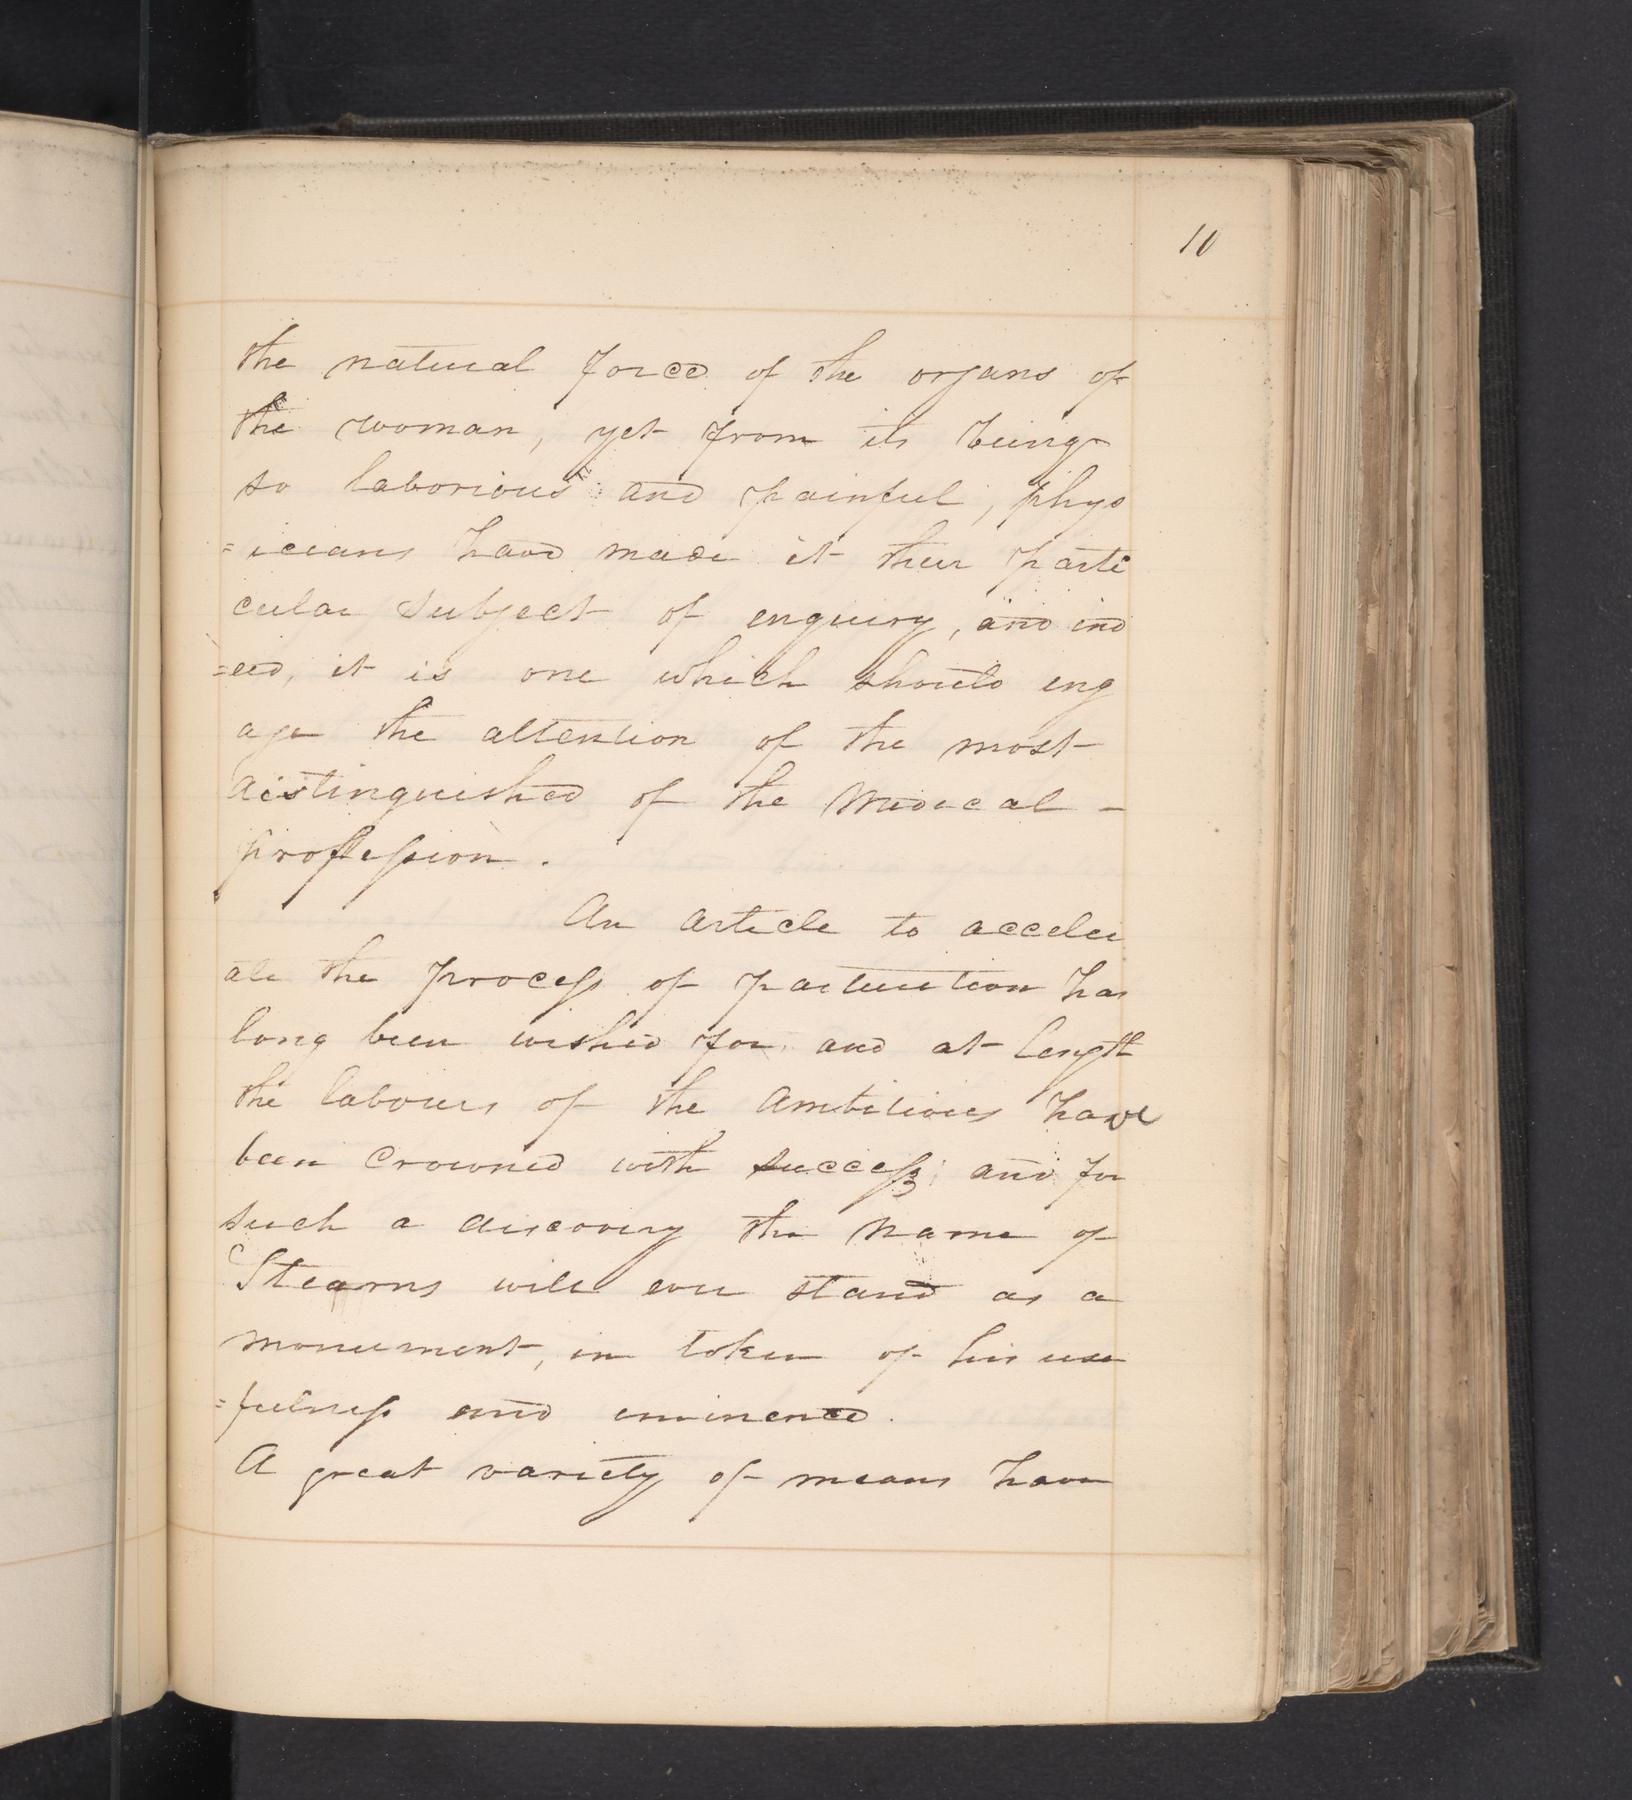 10
the natural force of the organs of
the woman, yet from its being
so laborious and painful, phys
=icians have made it their parti
cular subject of enquiry, and ind
=eed, it is one which should eng
age the attention of the most
distinguished of the Medical -
proffession.
An article to acceler
ate the process of parturition has
long been wished for, and at length
the labours of the ambitious have
been crowned with success; and for
such a discovery the name of
Stearns will ever stand as a
monument, in token of his use
=fulness and eminence.
A great variety of means have